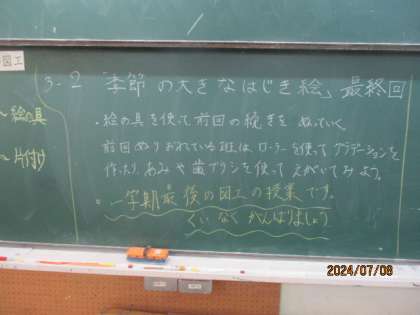 図工
3-2「季節の大きなはじき絵」最終回
絵の具
片付け
・絵の具を使って前回の続きをぬっていく。
前回ぬりおわっている班は、ローラーを使ってグラデーションを
作ったり、あみや歯ブラシを使ってえがいてみよう。
一学期最後の図工の授業です。
くいなくがんばりましょう
2024/07/08